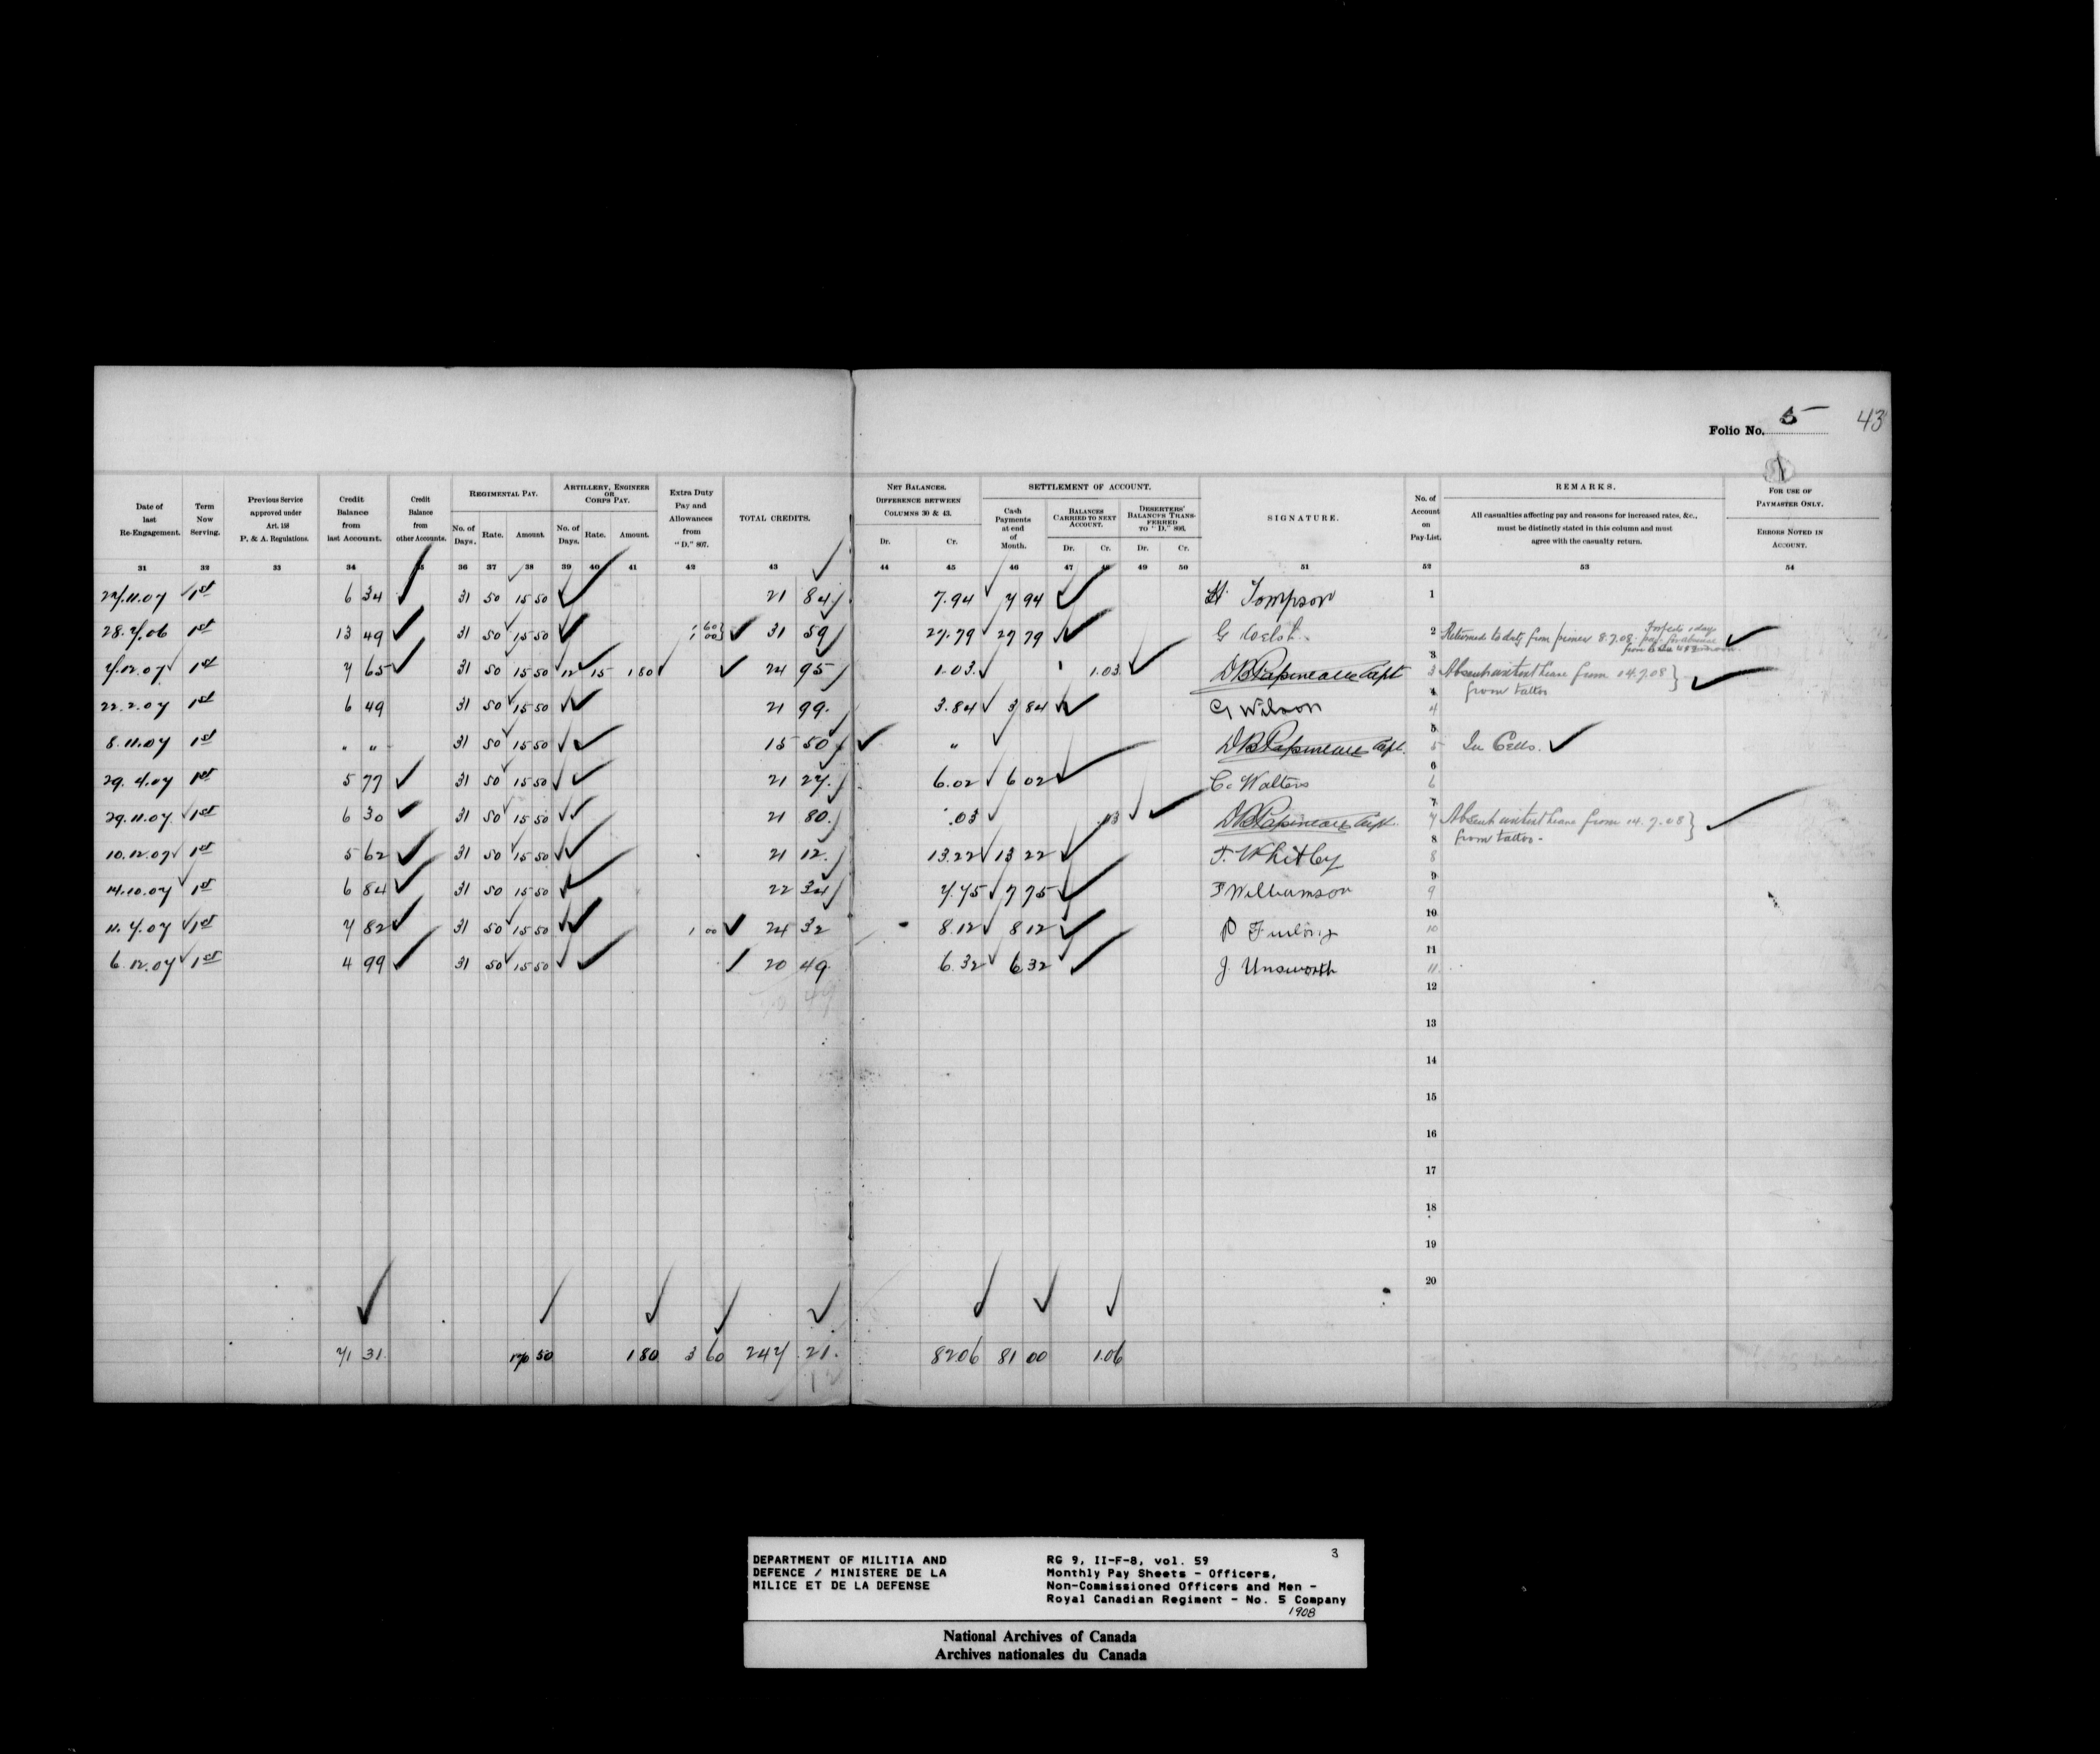 Folio No. 5 43
Date of last Re-Engagement. 31
Term Now Serving. 32
Previous Service approved under Art. 158 P. & A. Regulations. 33
Credit Balance from last Account. 34
Credit Balance from other Accounts. 35
REGIMENTAL PAY.
No. of Days. 36 Rate. 37 Amount. 38
ARTILLERY, ENGINEER OR CORPS PAY.
No. of Days. 39 Rate. 40 Amount. 41
Extra Duty Pay and Allowances from "D." 807. 42
TOTAL CREDITS. 43
NET BALANCES. DIFFERENCE BETWEEN COLUMNS 30 & 43.
Dr. 44 Cr. 45
SETTLEMENT OF ACCOUNT.
Cash Payments at end of Month. 46
BALANCES CARRIED TO NEXT ACCOUNT. Dr. 47 Cr. 48
DESERTERS' BALANCES TRANSFERRED TO "D." 808. Dr. 49 Cr. 50
SIGNATURE. 51
No. of Account on Pay-List. 52
REMARKS.
All casualties affecting pay and reasons for increased rates, &c., must be distinctly stated in this column and must agree with the casualty return. 53
FOR USE OF PAYMASTER ONLY.
ERRORS NOTED IN ACCOUNT. 54
27.11.07 1st 6 34 31 50 15 50 21 84 7.94 7 94 H. Tompson 1
28.7.06 1st 13 49 31 50 15 50 1 60 1 00 31 59 27.79 27 79 G Welsh 2 Returned to duty from 8.7.08
7.12.07 1st 7 65 31 50 15 50 12 15 1 80 24 95 1.03 1.03 D B Papineau Capt 3 Absent without leave from 14.7.08
from tattoo
22.2.07 1st 6 49 31 50 15 50 21 99 3.84 3 84 G Wilson 4
8.11.07 1st " " 31 50 15 50 15 50 " D B Papineau Capt. 5 In Cells.
29.4.07 1st 5 77 31 50 15 50 21 27 6.02 6 02 C. Walters 6
29.11.07 1st 6 30 31 50 15 50 21 80 .03 .03 D B Papineau Capt. 7 Absent without leave from 14.7.08
from tattoo
10.12.07 1st 5 62 31 50 15 50 21 12 13.22 13 22 F. Whitby 8
14.10.07 1st 6 84 31 50 15 50 22 34 7.75 7 75 F Williamson 9
11.7.07 1st 7 82 31 50 15 50 1 00 24 32 8.12 8 12 P Furlong 10
6.12.07 1st 4 99 31 50 15 50 20 49 6.32 6 32 J. Unsworth 11
12
13
14
15
16
17
18
19
20
71 31 170 50 1 80 3 60 247 21 82 06 81 00 1.06
DEPARTMENT OF MILITIA AND
DEFENCE / MINISTERE DE LA
MILICE ET DE LA DEFENSE
RG 9, II-F-8, vol. 59 3
Monthly Pay Sheets - Officers,
Non-Commissioned Officers and Men -
Royal Canadian Regiment - No. 5 Company
1908
National Archives of Canada
Archives nationales du Canada